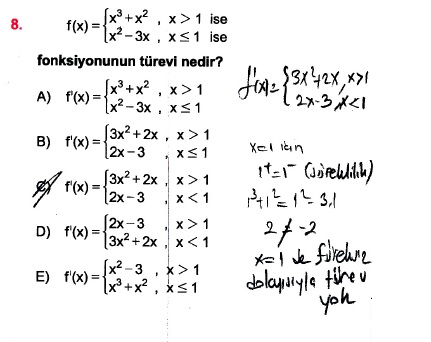 8. f(x) = { x³+x² , x > 1 ise
x²−3x , x ≤ 1 ise
fonksiyonunun türevi nedir?
A) f'(x) = { x³+x² , x > 1
x²−3x , x ≤ 1
B) f'(x) = { 3x²+2x , x > 1
2x−3 , x ≤ 1
C) f'(x) = { 3x²+2x , x > 1
2x−3 , x < 1
D) f'(x) = { 2x−3 , x > 1
3x²+2x , x < 1
E) f'(x) = { x²−3 , x > 1
x³+x² , x ≤ 1
f'(x) = { 3x²+2x, x>1
2x−3, x<1
x=1 için
1⁺=1⁻ (süreklilik)
1³+1² = 1²−3.1
2 ≠ −2
x=1 de süreksiz
dolayısıyla türev
yok